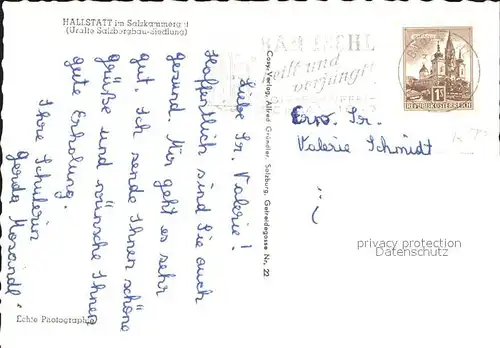 HALLSTATT im Salzkammergut
(Uralte Salzbergbau-Siedlung)
BAD ISCHL
heilt und
verjüngt
1S
REPUBLIK ÖSTERREICH
Cosy-Verlag, Alfred Gründler, Salzburg, Getreidegasse Nr. 22
Liebe Sr. Valerie!
Hoffentlich sind Sie auch
gesund. Mir geht es sehr
gut. Ich sende Ihnen schöne
Grüße und wünsche Ihnen
gute Erholung.
Ihre Schülerin
Gerda
Sr.
Valerie Schmidt
privacy protection
Datenschutz
Echte Photographie